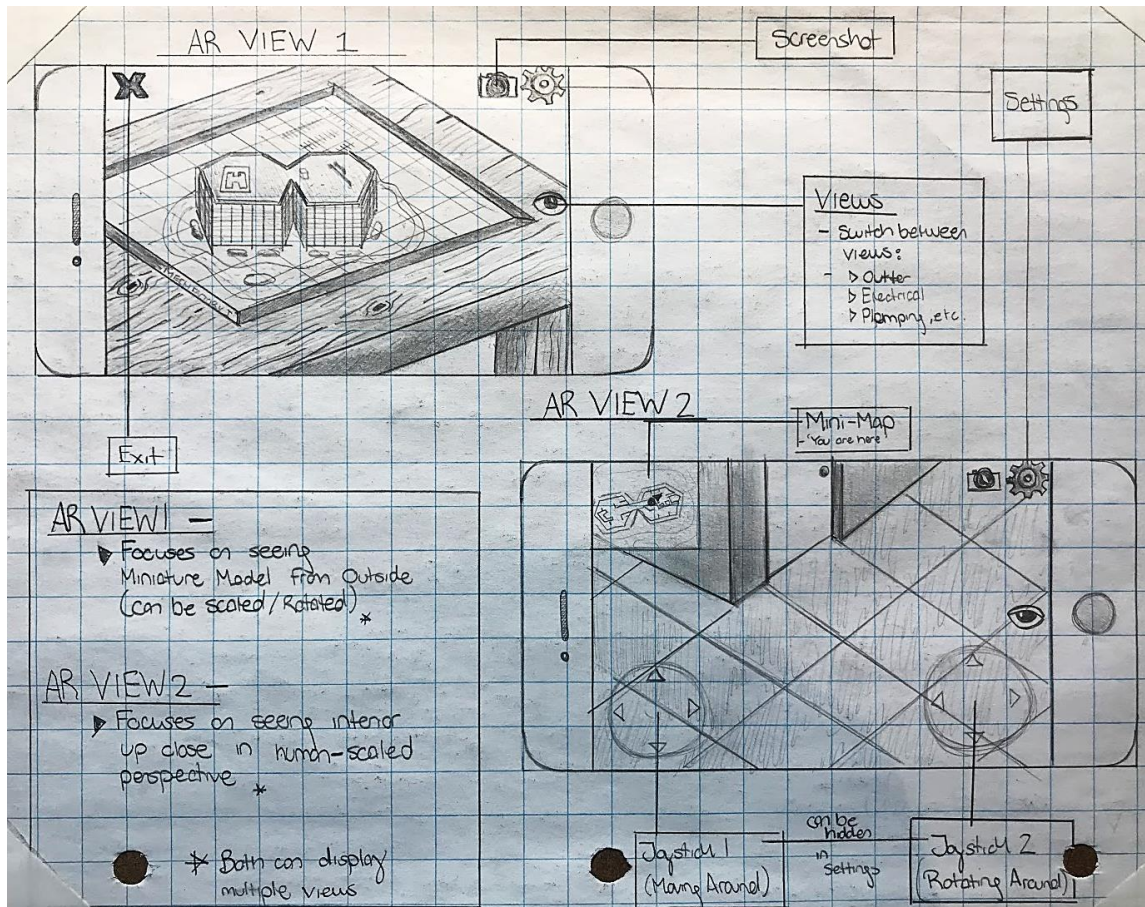 AR VIEW 1
Screenshot
Settings
Views
- Switch between
views:
- ▷ Outter
▷ Electrical
▷ Plamping, etc.
Exit
AR VIEW 2
Mini-Map
- "You are here
AR VIEW 1 —
▶ Focuses on seeing
Miniature Model From Outside
(can be scaled/Rotated) *
AR VIEW 2 —
▶ Focuses on seeing interior
up close in human-scaled
perspective *
* Both can display
multiple views
Joystick 1
(Moving Around)
can be
hidden
in
settings
Joystick 2
(Rotating Around)